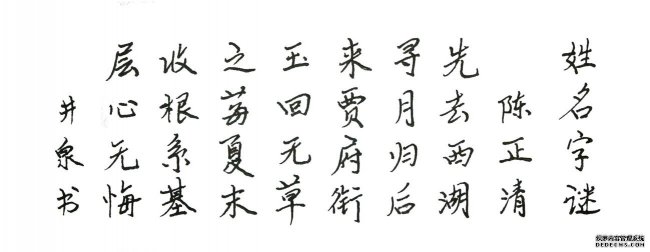 姓名字谜
陈正清
先去西湖
寻月归后
来贾府街
玉回无草
之莓夏末
收根系基
层心无悔
井泉书